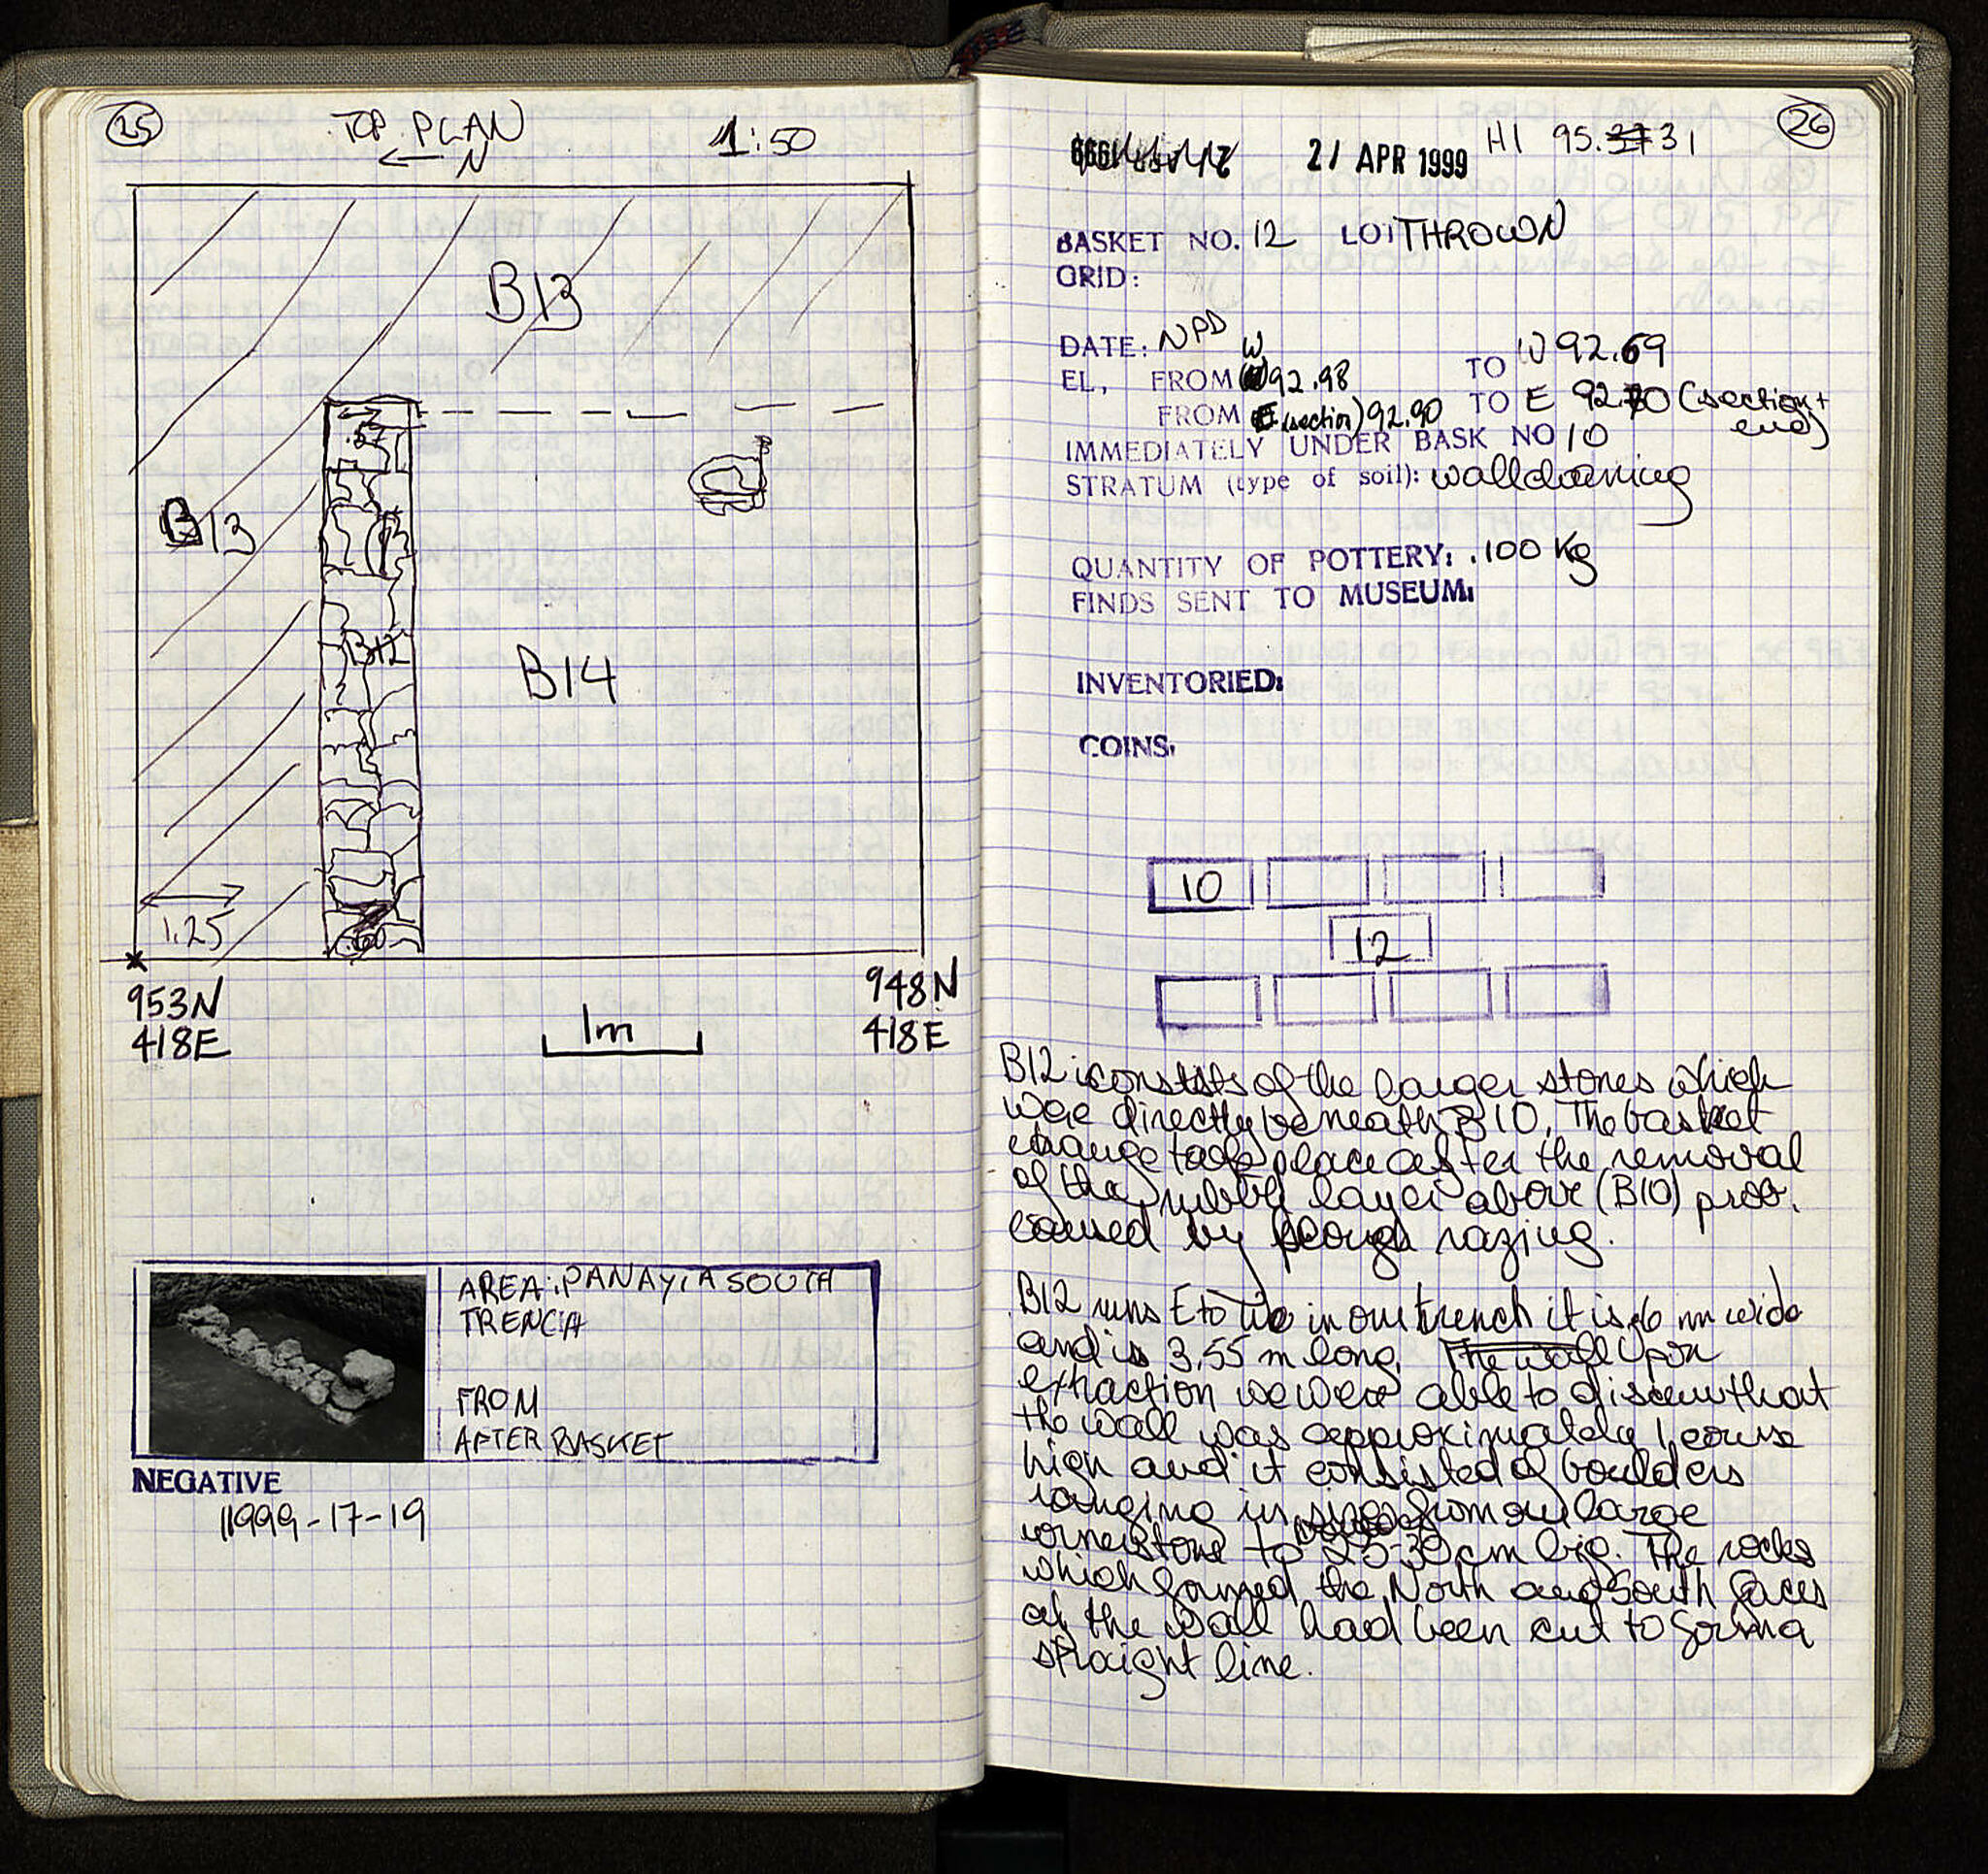 25
TOP PLAN
1:50
N
B13
B13
B12
B14
1.25
.60
953N
418E
948N
418E
1m
AREA: PANAYIA SOUTH
TRENCH
FROM
AFTER BASKET
NEGATIVE
1999-17-19
26
21 APR 1999
HI 95.31
BASKET NO. 12 LOT THROWN
GRID:
DATE: NPD
EL, FROM W 92.98 TO W 92.69
FROM E (section) 92.90 TO E 92.70 (section + end)
IMMEDIATELY UNDER BASK NO 10
STRATUM (type of soil): wallcleaning
QUANTITY OF POTTERY: .100 Kg
FINDS SENT TO MUSEUM:
INVENTORIED:
COINS:
10
12
B12 consists of the larger stones which
were directly beneath B10. The basket
change took place after the removal
of the rubble layer above (B10) prob.
caused by plough razing.
B12 runs E to W in our trench it is .6 m wide
and is 3.55 m long. The wall Upon
extraction we were able to discern that
the wall was approximately 1 course
high and it consisted of boulders
ranging in size from our large
cornerstone to 25-30 cm big. The rocks
which formed the North and South faces
of the wall had been cut to form a
straight line.